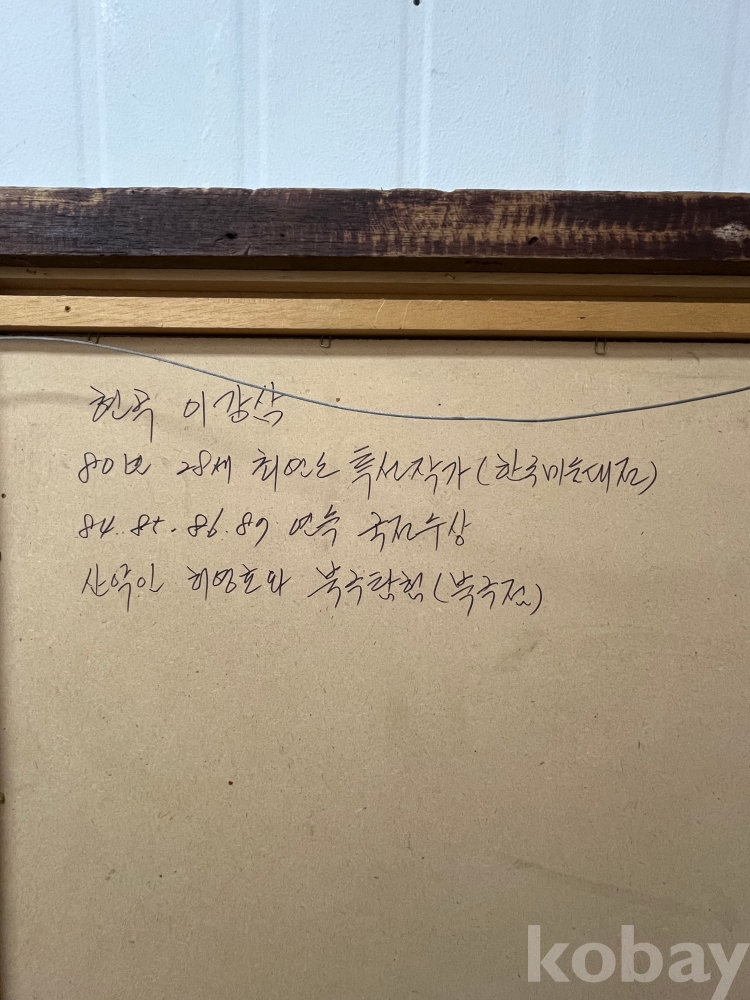 현곡 이강산
80년 28세 최연소 특선작가(한국미술대전)
84. 85. 86. 87 연속 국전수상
산악인 허영호와 북극탐험(북극전)
kobay